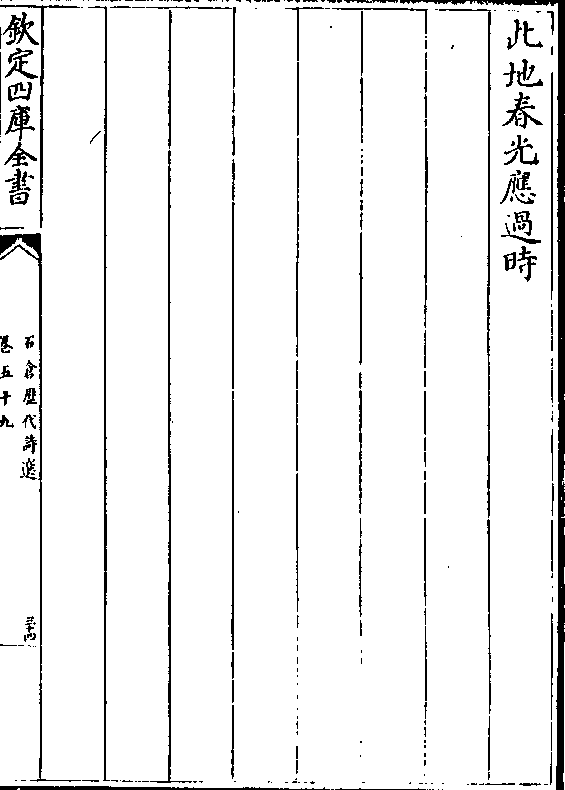 此地春光應過時
欽定四庫全書
石倉歴代詩選
卷五十九
三十四